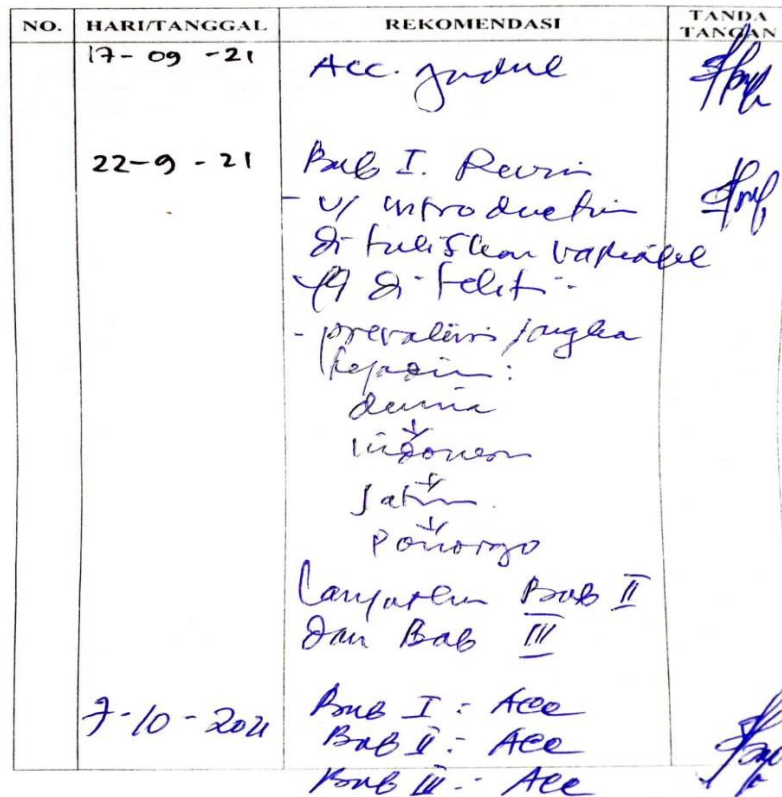 NO. HARI/TANGGAL REKOMENDASI TANDA TANGAN
17-09-21 Acc. Judul
22-9-21 Bab I. Revisi
- u/ introduction
di tuliskan variabel
yg di teliti.
- prevalensi / angka
kejadian:
dunia
↓
Indonesia
↓
Jatim.
↓
Ponorogo
Lanjutkan Bab II
dan Bab III
7-10-2021 Bab I : Acc
Bab II : Acc
Bab III : Acc